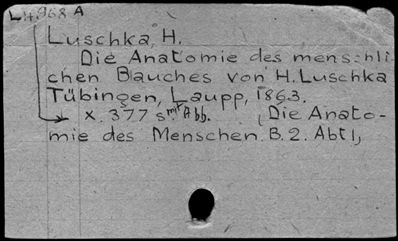 L4968 A
Luschka, H.
Die Anatomie des menschli-
chen Bauches von H. Luschka
Tübingen, Laupp, 1863.
x. 377 s mit Abb. (Die Anato-
mie des Menschen. B. 2. Abt 1,